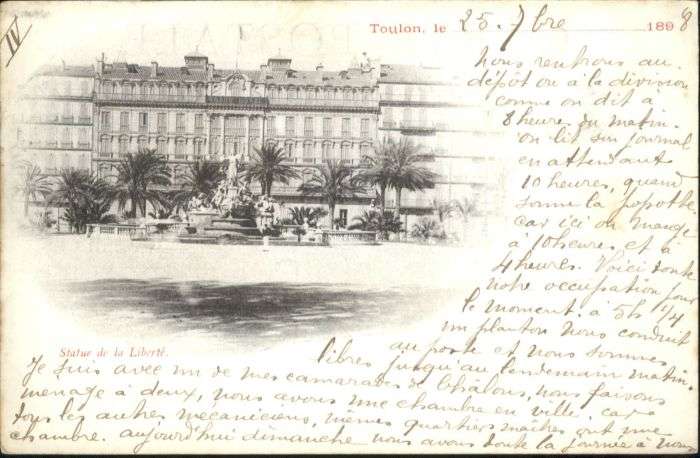 IV
Toulon, le 25. 7bre 1898
Nous rentrons au
dépôt ou à la division
comme on dit à
8 heure du matin.
on lit son journal
en attendant
10 heures, quand
sonne la popotte
car ici on mange
à 10 heures et à
4 heures. Voici toute
notre occupation pour
le moment. à 5h 1/4
un planton nous conduit
au poste et nous sommes
libres jusqu'au lendemain matin.
Je suis avec un de mes camarades de Châlons, nous faisons
ménage à deux, nous avons une chambre en ville. car
tous les autres mecaniciens, mêmes quartiers maîtres ont une
chambre. aujourd'hui dimanche nous avons toute la journée à nous
Statue de la Liberté.